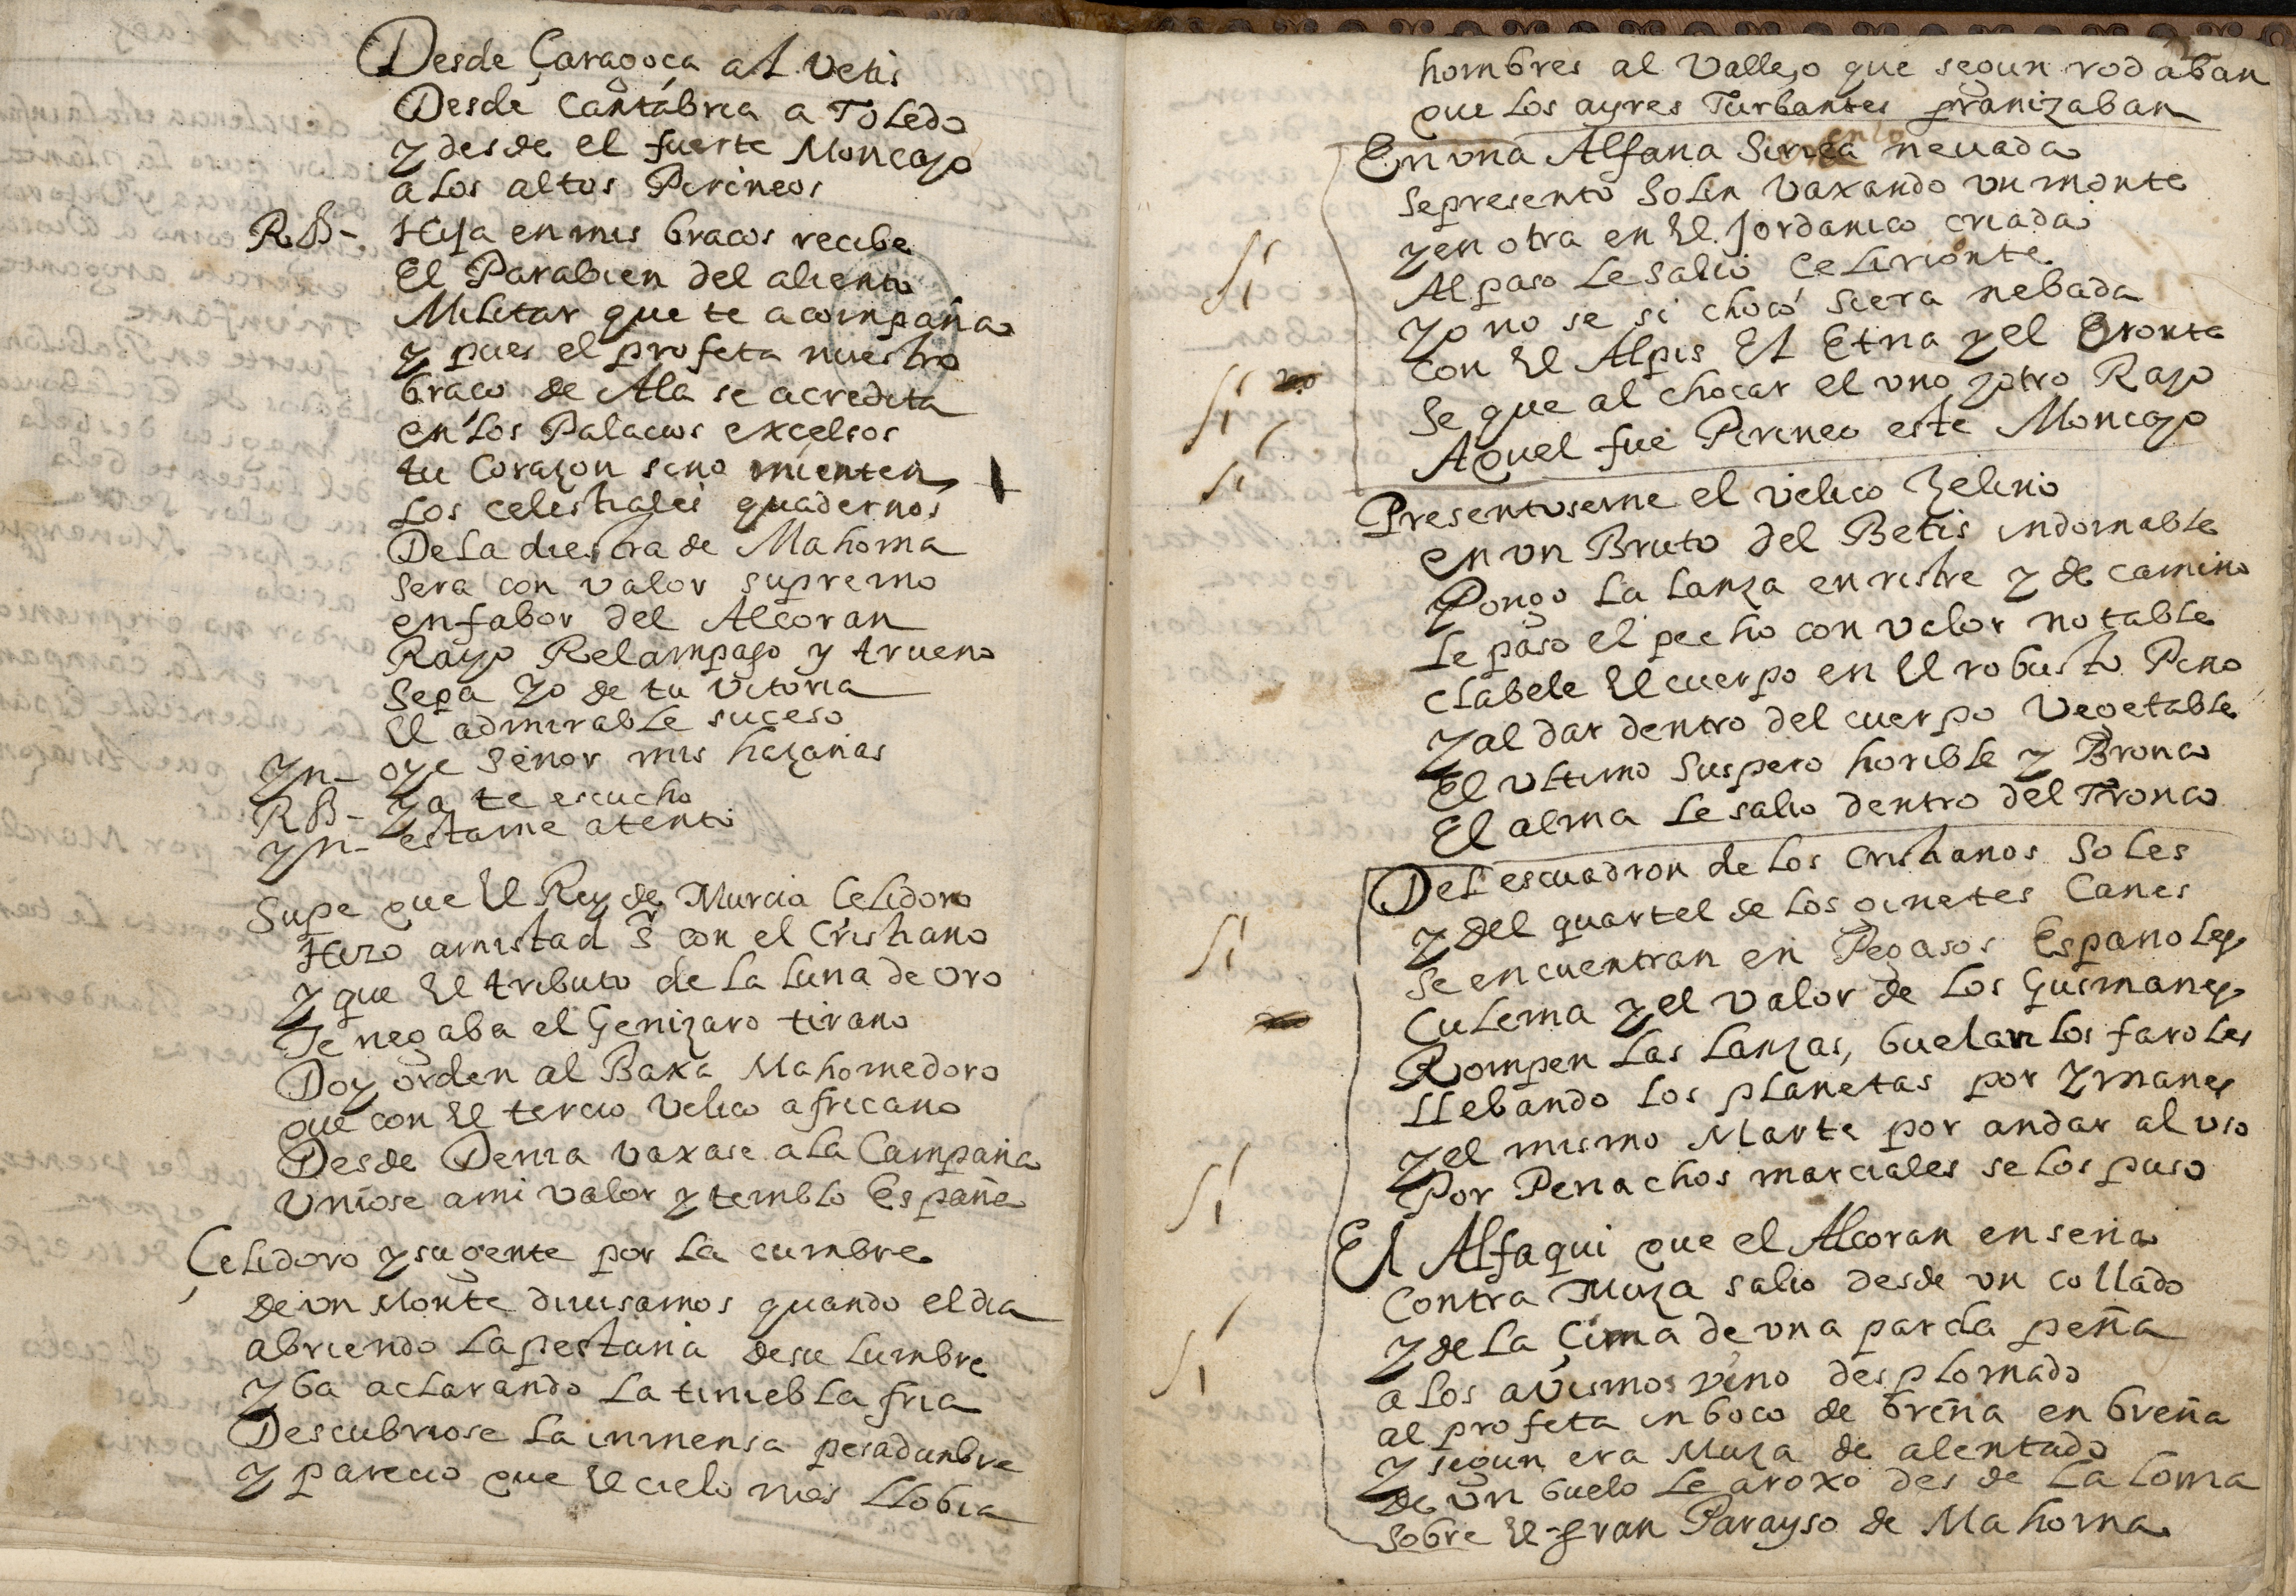 Desde Çaragoça al Vetis
Desde Cantabria a Toledo
y desde el fuerte Moncayo
a los altos Pirineos
R B - Hija en mis bracos recibe
El Parabien del aliento
Militar que te acompaña
y pues el profeta nuestro
braco de Ala se acredita
en los Palacios excelsos
tu Corazon sino mienten
Los celestiales quadernos
De La diestra de Mahoma
sera con valor supremo
en fabor del Alcoran
Rayo Relampago y trueno
Sepa yo de tu Vitoria
El admirable suceso
Yn - oye Señor mis hazañas
R B - Ya te escucho
Yn - estame atento
Supe que El Rey de Murcia Celidoro
Hizo amistad Sr con el Cristiano
y que El tributo de La Luna de oro
Te negaba el Genizaro tirano
Doy orden al Baxa Mahomedoro
que con El tercio Velico africano
Desde Denia vaxase a La Campaña
Uniose a mi valor y temblo España
Çelidoro y su gente por La cumbre
de un Monte diuisamos quando el dia
abriendo La pestaña de su Lumbre
yba aclarando La tiniebla fria
Descubriose La inmensa pesadunbre
y parecio que El cielo nos LLobia
hombres al Vallejo que segun rodaban
que Los ayres Turbantes granizaban
En una Alfana Sirica neuada
Se presento Solin vaxando un monte
y en otra en El Jordanico criada
si
Al paso Le salio Celirionte
yo no se si choco siera nebada
con El Alpis El Etna y el Oronte
si no
Se que al chocar el uno y otro Rayo
Aquel fue Pirineo este Moncayo
si
Presentoseme el velico Zelino
en un Bruto del Betis indomable
Pongo La Lanza en ristre y de camino
Le paso el pecho con valor notable
clabele El cuerpo en El robusto Pino
y al dar dentro del cuerpo Vegetable
El ultimo suspero horible y Bronco
El alma Le salio dentro del Tronco
Del escuadron de Los Cristianos Soles
y del quartel de Los ginetes Canes
si
se encuentran en Pegasos Españoles
Culema y el valor de Los Gusmanes
Rompen Las Lanzas, buelan Los faroles
LLebando Los planetas por Ymanes
y el mismo Marte por andar al uso
Por Penachos marciales se Los puso
si
El Alfaqui que el Alcoran enseña
Contra Muza salio desde un collado
y de La Çima de una parda peña
si
a Los avismos vino desplomado
al profeta inboco de breña en breña
y segun era Muza de alentado
de un buelo Le aroxo desde La Loma
sobre El gran Parayso de Mahoma